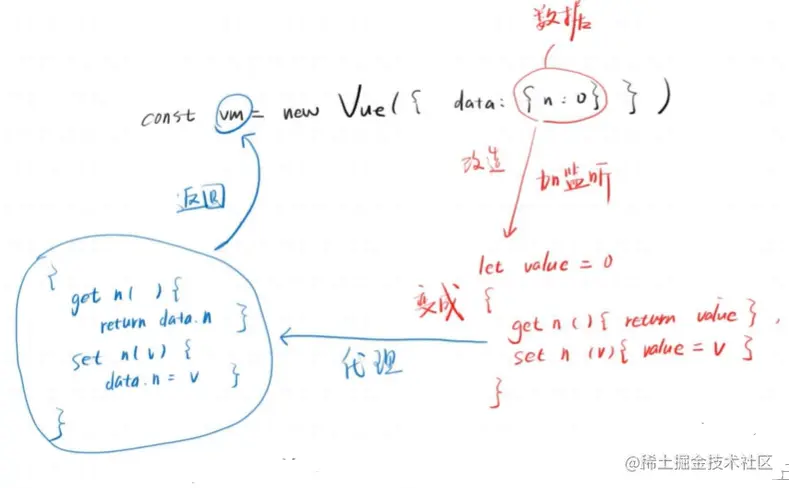 数据
const vm = new Vue({ data: {n:0} })
改造
加监听
返回
let value = 0
变成
{
get n(){ return value },
set n(v){ value = v }
}
代理
{
get n( ){
return data.n }
set n(v) {
data.n = v }
}
@稀土掘金技术社区